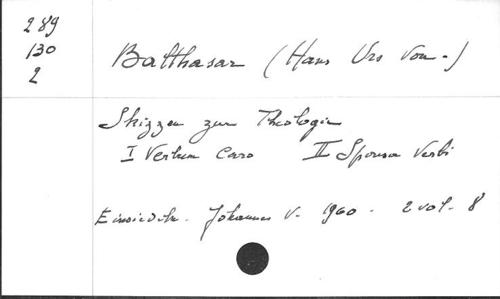 289
130
2
Balthasar (Hans Urs von -)
Skizzen zur Theologie
I Verbum Caro II Sponsa Verbi
Einsiedeln - Johannes V. - 1960 - 2 vol - 8